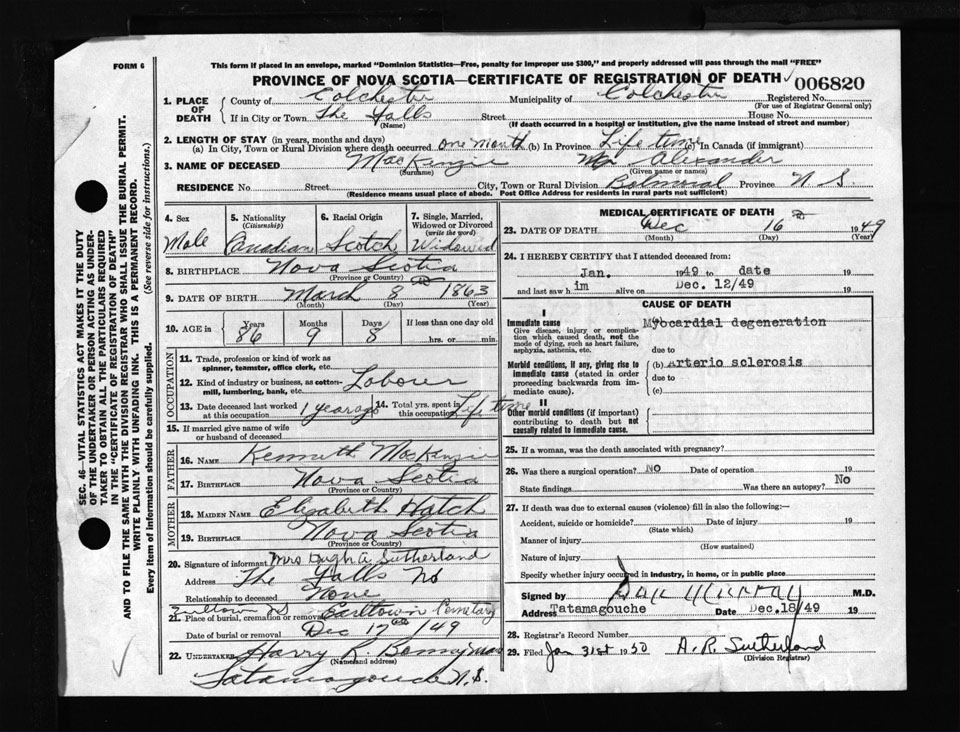 FORM 6
This form if placed in an envelope, marked "Dominion Statistics—Free, penalty for improper use $300," and properly addressed will pass through the mail "FREE"
PROVINCE OF NOVA SCOTIA—CERTIFICATE OF REGISTRATION OF DEATH 006820
1. PLACE OF DEATH
County of Colchester Municipality of Colchester Registered No.
(For use of Registrar General only)
If in City or Town The Falls Street House No.
(Name) (If death occurred in a hospital or institution, give the name instead of street and number)
2. LENGTH OF STAY (in years, months and days)
(a) In City, Town or Rural Division where death occurred one month (b) In Province Life time (c) In Canada (if immigrant)
3. NAME OF DECEASED MacKenzie Mr Alexander
(Surname) (Given name or names)
RESIDENCE No Street City, Town or Rural Division Balmoral Province N S
(Residence means usual place of abode. Post Office Address for residents in rural parts not sufficient)
4. Sex
Male
5. Nationality
(Citizenship)
Canadian
6. Racial Origin
Scotch
7. Single, Married, Widowed or Divorced
(write the word)
Widowed
8. BIRTHPLACE Nova Scotia
(Province or Country)
9. DATE OF BIRTH March 8 1863
(Month) (Day) (Year)
10. AGE in
Years Months Days If less than one day old
86 9 8 hrs. or min.
OCCUPATION
11. Trade, profession or kind of work as
spinner, teamster, office clerk, etc.
12. Kind of industry or business, as cotton-
mill, lumbering, bank, etc. Laborer
13. Date deceased last worked at this occupation 1 year ago
14. Total yrs. spent in this occupation Life time
15. If married give name of wife
or husband of deceased
FATHER
16. NAME Kenneth MacKenzie
17. BIRTHPLACE Nova Scotia
(Province or Country)
MOTHER
18. MAIDEN NAME Elizabeth Hatch
19. BIRTHPLACE Nova Scotia
(Province or Country)
20. Signature of informant Mrs Hugh A Sutherland
Address The Falls NS
Relationship to deceased None
Earltown NS Earltown Cemetary
21. Place of burial, cremation or removal
Date of burial or removal Dec 17th/49
22. UNDERTAKER Harry R. Bonnyman
(Name and address)
Tatamagouche N.S.
MEDICAL CERTIFICATE OF DEATH
23. DATE OF DEATH Dec 16 1949
(Month) (Day) (Year)
24. I HEREBY CERTIFY that I attended deceased from:
Jan. 1949 to date 19
and last saw him alive on Dec. 12/49 19
CAUSE OF DEATH
I
Immediate cause
Give disease, injury or complication which caused death, not the mode of dying, such as heart failure, asphyxia, asthenia, etc.
Myocardial degeneration
due to
Morbid conditions, if any, giving rise to immediate cause (stated in order proceeding backwards from immediate cause).
(b) Arterio sclerosis
due to
(c)
II
Other morbid conditions (if important) contributing to death but not causally related to immediate cause.
25. If a woman, was the death associated with pregnancy?
26. Was there a surgical operation? NO Date of operation 19
State findings Was there an autopsy? No
27. If death was due to external causes (violence) fill in also the following:—
Accident, suicide or homicide? Date of injury 19
(State which)
Manner of injury
(How sustained)
Nature of injury
Specify whether injury occured in industry, in home, or in public place
Signed by Dan Murray M.D.
Address Tatamagouche Date Dec.18/49 19
28. Registrar's Record Number
29. Filed Jan 31st 1950 A. R. Sutherland
(Division Registrar)
SEC. 46—VITAL STATISTICS ACT MAKES IT THE DUTY
OF THE UNDERTAKER OR PERSON ACTING AS UNDER-
TAKER TO OBTAIN ALL THE PARTICULARS REQUIRED
IN THE "CERTIFICATE OF REGISTRATION OF DEATH"
AND TO FILE THE SAME WITH THE DIVISION REGISTRAR WHO SHALL ISSUE THE BURIAL PERMIT.
WRITE PLAINLY WITH UNFADING INK. THIS IS A PERMANENT RECORD.
Every item of information should be carefully supplied. (See reverse side for instructions.)